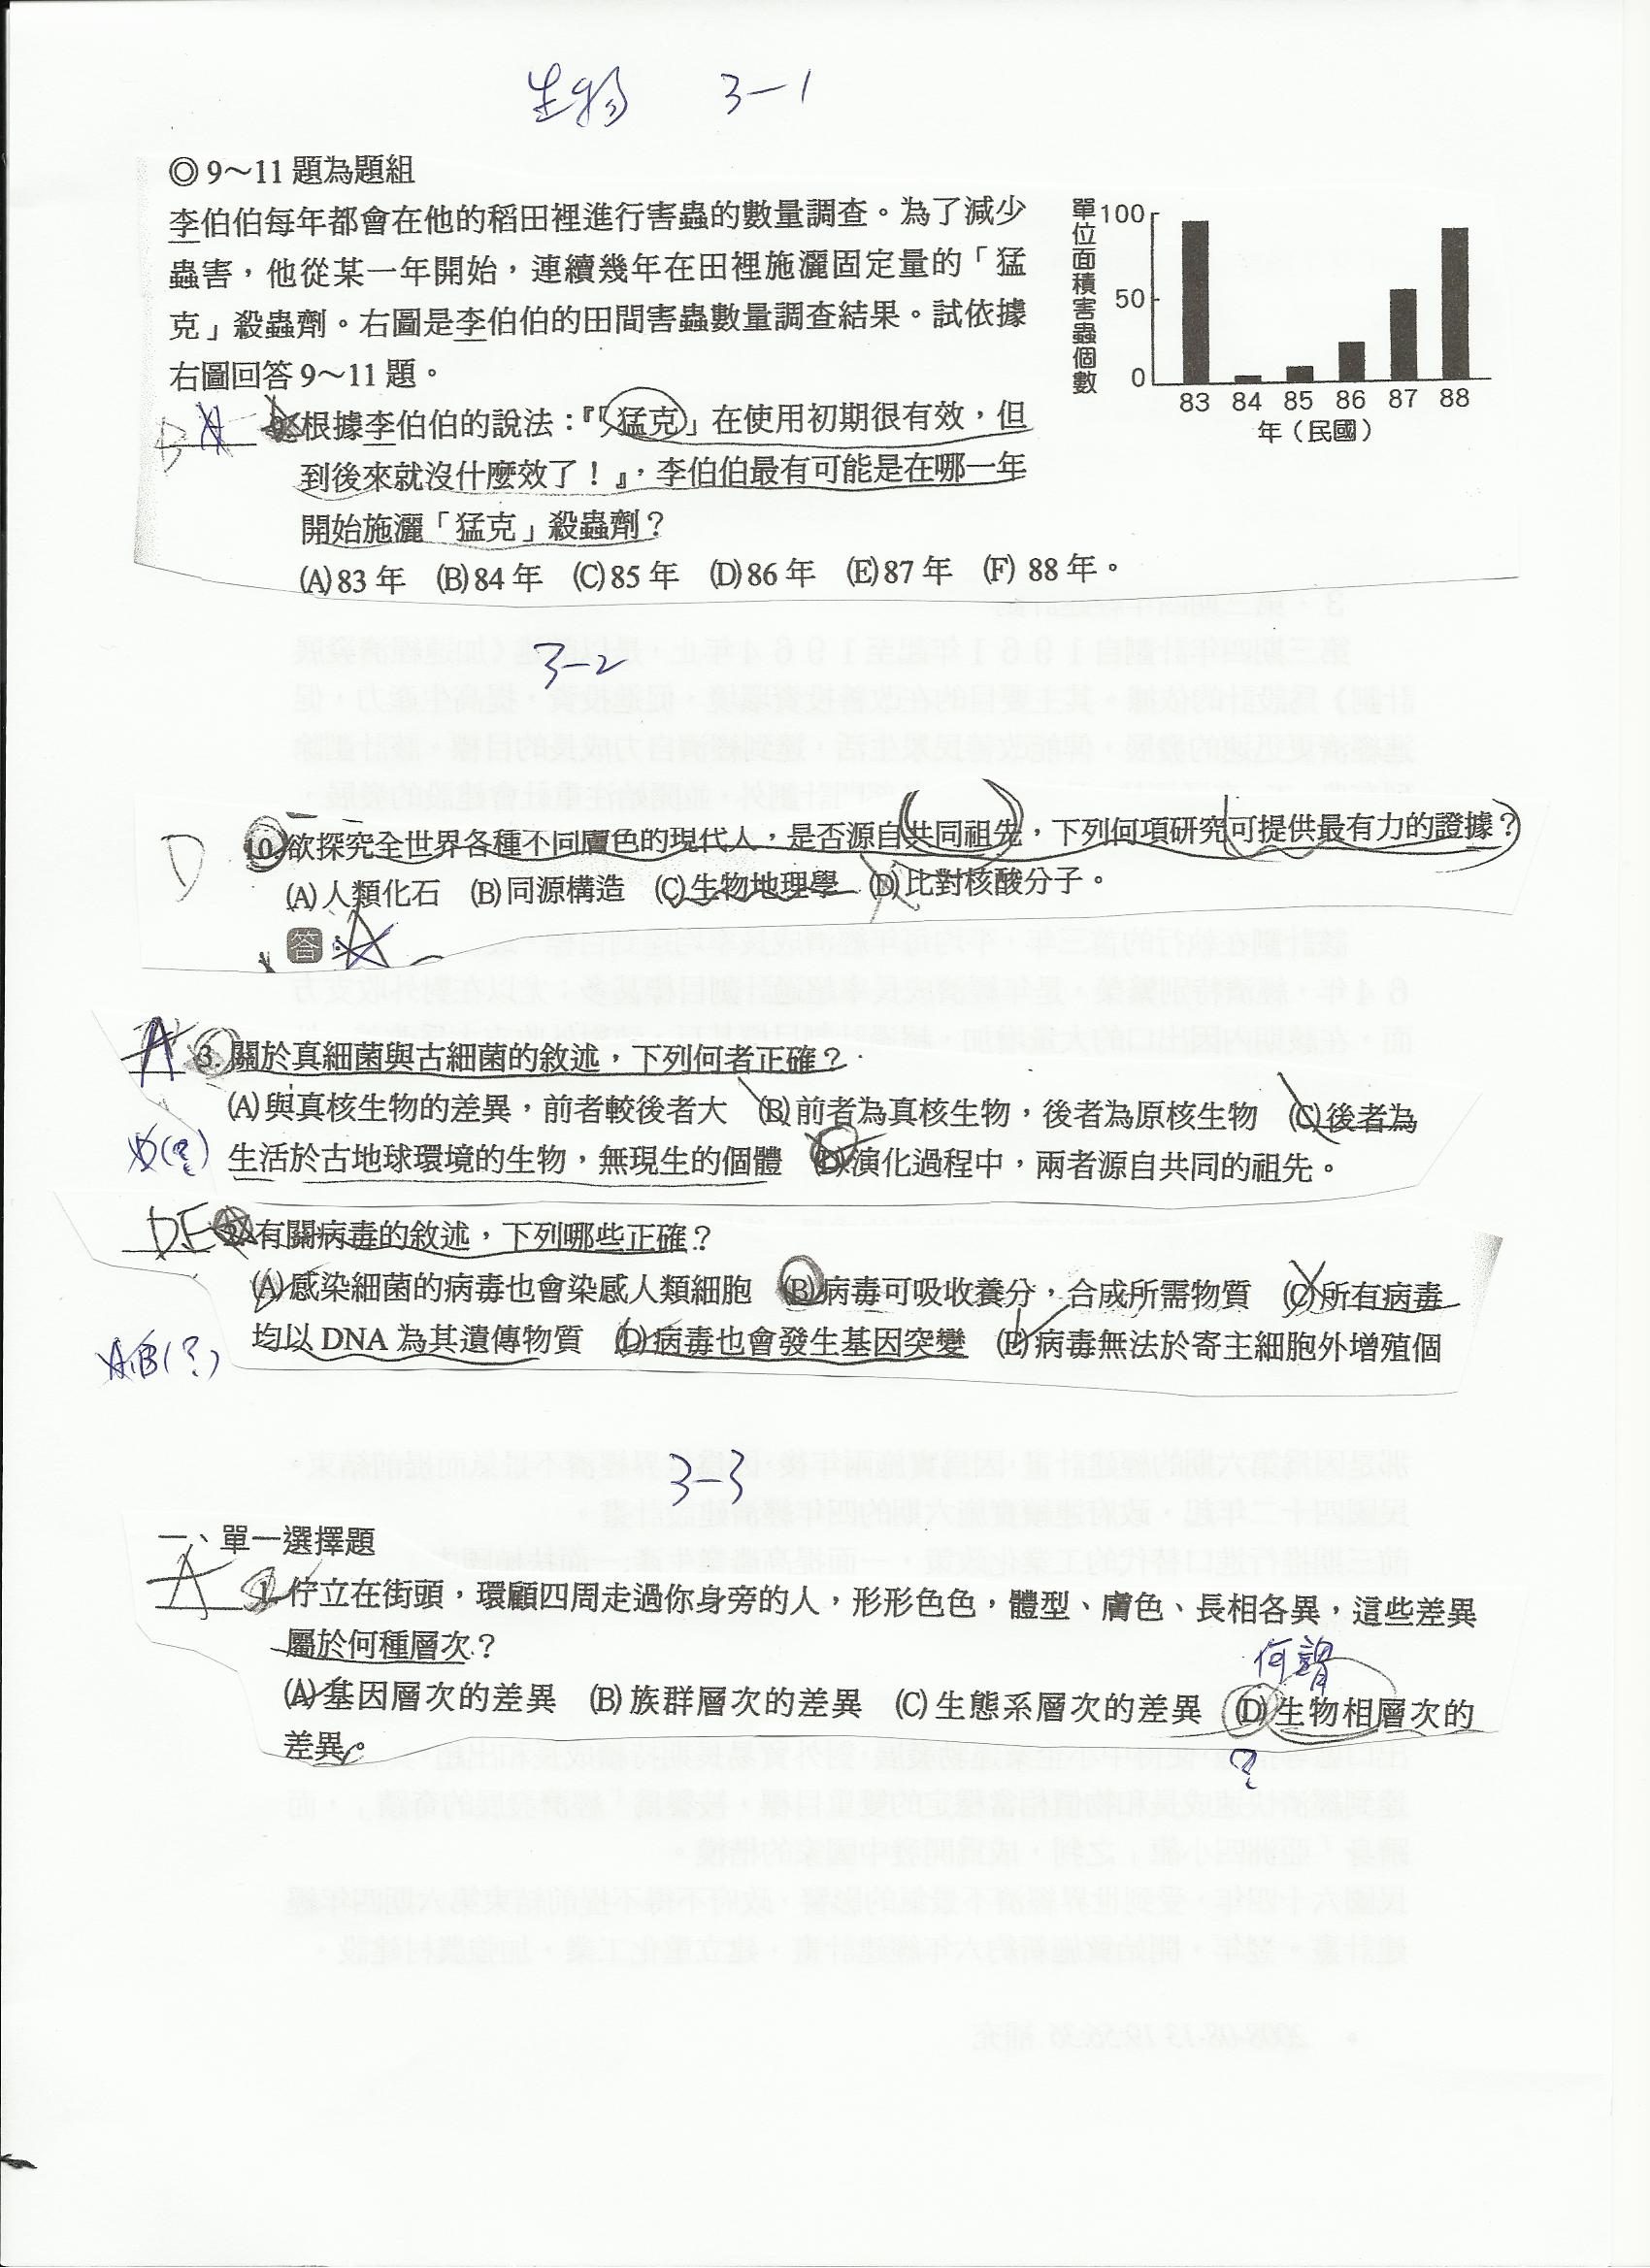 生物 3-1
◎9～11 題為題組
李伯伯每年都會在他的稻田裡進行害蟲的數量調查。為了減少
蟲害，他從某一年開始，連續幾年在田裡施灑固定量的「猛
克」殺蟲劑。右圖是李伯伯的田間害蟲數量調查結果。試依據
右圖回答 9～11 題。
單位面積害蟲個數
100
50
0
83 84 85 86 87 88
年（民國）
B A 9.根據李伯伯的說法：『「猛克」在使用初期很有效，但
到後來就沒什麼效了！』，李伯伯最有可能是在哪一年
開始施灑「猛克」殺蟲劑？
(A)83 年 (B)84 年 (C)85 年 (D)86 年 (E)87 年 (F) 88 年。
3-2
D 10.欲探究全世界各種不同膚色的現代人，是否源自共同祖先，下列何項研究可提供最有力的證據？
(A)人類化石 (B)同源構造 (C)生物地理學 (D)比對核酸分子。
答：A
A 3.關於真細菌與古細菌的敘述，下列何者正確？
(A)與真核生物的差異，前者較後者大 (B)前者為真核生物，後者為原核生物 (C)後者為
生活於古地球環境的生物，無現生的個體 (D)演化過程中，兩者源自共同的祖先。
D(?)
DE 2.有關病毒的敘述，下列哪些正確？
(A)感染細菌的病毒也會染感人類細胞 (B)病毒可吸收養分，合成所需物質 (C)所有病毒
均以 DNA 為其遺傳物質 (D)病毒也會發生基因突變 (E)病毒無法於寄主細胞外增殖個
AB(?)
3-3
一、單一選擇題
A 1.佇立在街頭，環顧四周走過你身旁的人，形形色色，體型、膚色、長相各異，這些差異
屬於何種層次？
何謂
(A)基因層次的差異 (B)族群層次的差異 (C)生態系層次的差異 (D)生物相層次的
差異。
?